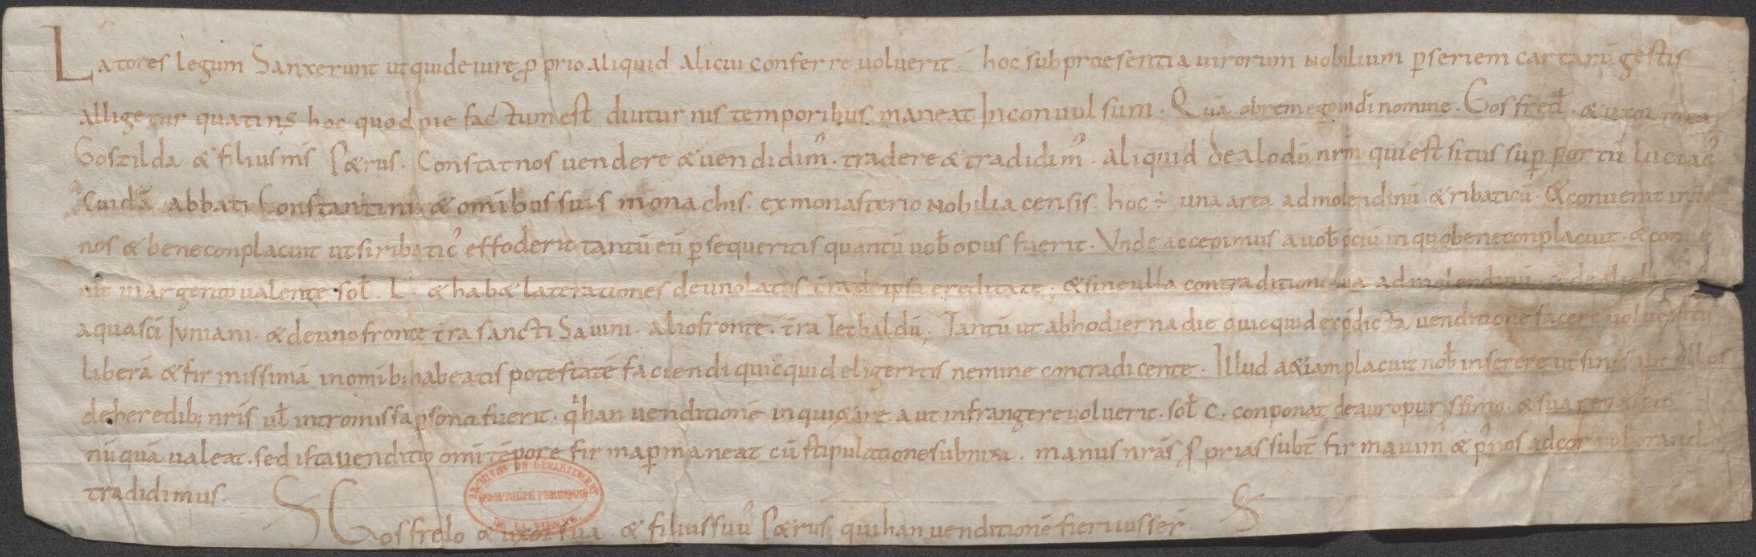 Latores legum Sanxerunt ut qui de iure p̱prio aliquid alicui conferre voluerit hoc sub praesentia virorum nobilium p̱ seriem cartarū gestis
alligetur quatin; hoc quod pie factum est diuturnis temporibus maneat Inconvulsum. Quā obrem ego indī nomine. Gosfred̄. & uxor mea
Gostilda & filius nīs Pætrus. Constat nos vendere & vendidim᷒. tradere & tradidim᷒. aliquid de alodū nr̄m qui est situs sup̱ portū luciac̄
Cuidā abbati Constantini & om̄ibus suis monachis. ex monasterio nobiliacensis. hoc ÷ una area ad molendinū. & ribaticū. & convenit inter
nos & bene conplacuit ut si ribatic̄ effoderit tantū eū p̱sequeritis quantū vob̄ opus fuerit. Unde accepimus a vob̄ p̄ciū in quo bene conplacuit. & con
nit in argento valente sol̄. L. & hab& laterationes de uno latus t̄ra de ipsa ereditate. & sine ulla contraditione via ad molendinū
aqua sc̄i Juniani. & de uno fronte t̄ra sancti Savini. alio fronte. t̄ra Ietbaldū. Tantū ut ab hodierna die quicquid
liberā & firmissimā in omib; habeatis potestatē faciendi quicquid eligeritis nemine contradicente. Illud &iam placuit nob̄ inserere ut si nos aut ullus
de heredib; nr̄is ul̄ intromissa p̱sona fuerit. q̄ han venditionē inqui&are aut infrangere voluerit. sol̄ C. conponat de auro purissimo. & sua
nūquā valeat. sed ista venditio om̄i tēpore firma p̱maneat cū stipulatione subnixa. manus nr̄as p̱prias subt̄ firmavim᷒ &
tradidimus.
S Gosfredo & uxor sua & filius suū Pætrus qui han venditionē fieri iusser̄. S
ARCHIVES DU DEPARTEMENT
DE LA VIENNE